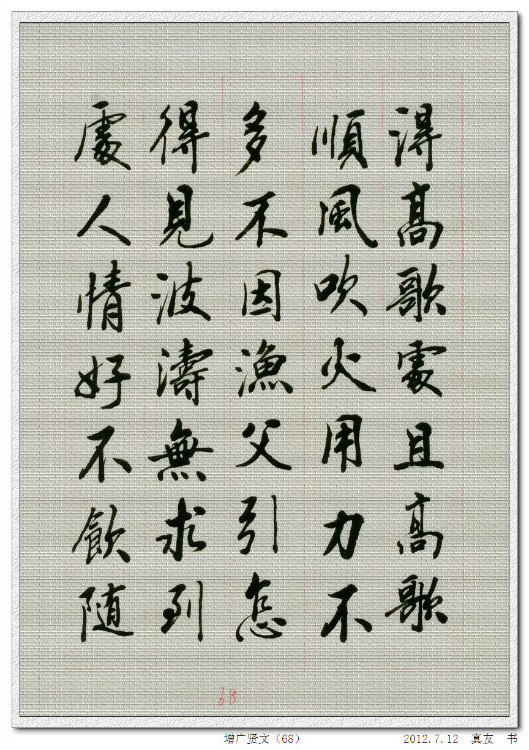 得高歌處且高歌
順風吹火用力不
多不因漁父引怎
得見波濤無求到
處人情好不飲隨
68
增广贤文（68）
2012.7.12 真友 书